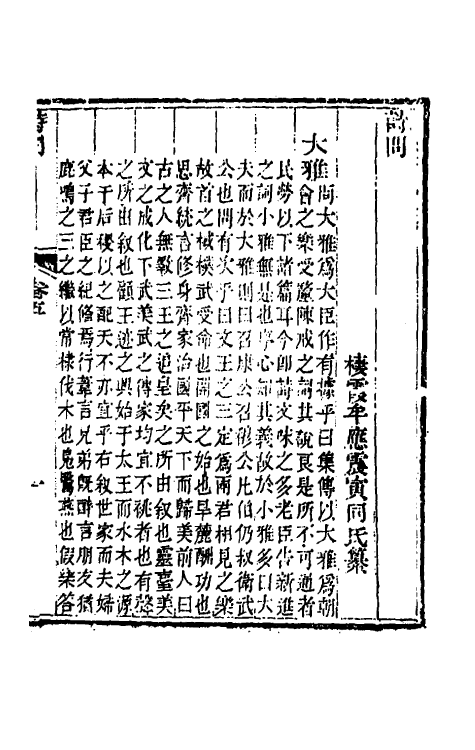 詩問
棲霞牟應震寅同氏纂
大雅問大雅爲大臣作有據乎曰集傳以大雅爲朝
會之樂受釐陳戒之詞其說良是所不可通者
民勞以下諸篇耳今卽詩文味之多老臣告新進
之詞小雅無是也序心知其義故於小雅多曰大
夫而於大雅則曰召康公召穆公凡伯仍叔衛武
公也問有次乎曰文王之三定爲兩君相見之樂
故首之棫樸武受命也開國之始也旱麓酬功也
思齊統言修身齊家治國平天下而歸美前人曰
古之人無斁三王之追皇矣之所由叙也靈臺美
文之成化下武美武之傳家均宜不祧者也有聲
之所由叙也顧王迹之興始于太王而水木之源
本于后稷以之配天不亦宜乎右叙世家而夫婦
父子君臣之紀修焉行葦言兄弟旣醉言朋友猶
鹿鳴之三之繼以常棣伐木也鳧鷖燕也假樂答
詩問
卷五
一